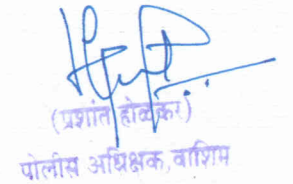 (प्रशांत होळकर)
पोलीस अधिक्षक, वाशिम